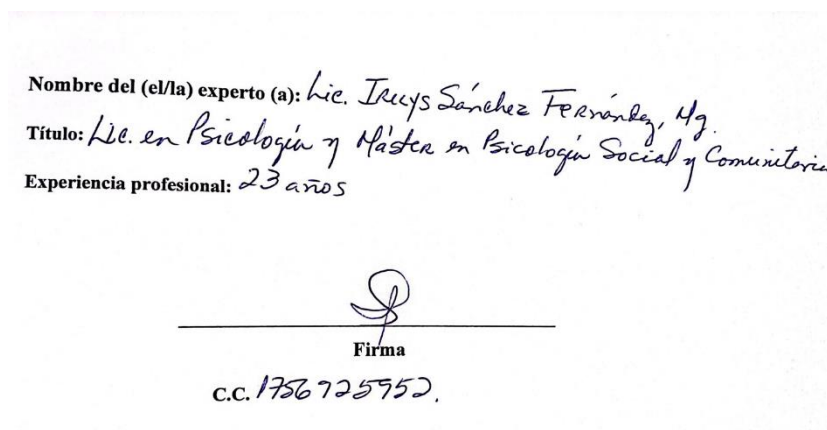 Nombre del (el/la) experto (a): Lic. Irecys Sánchez Fernández, Mg.
Título: Lic. en Psicología y Máster en Psicología Social y Comunitaria
Experiencia profesional: 23 años
Firma
C.C. 1756925952.